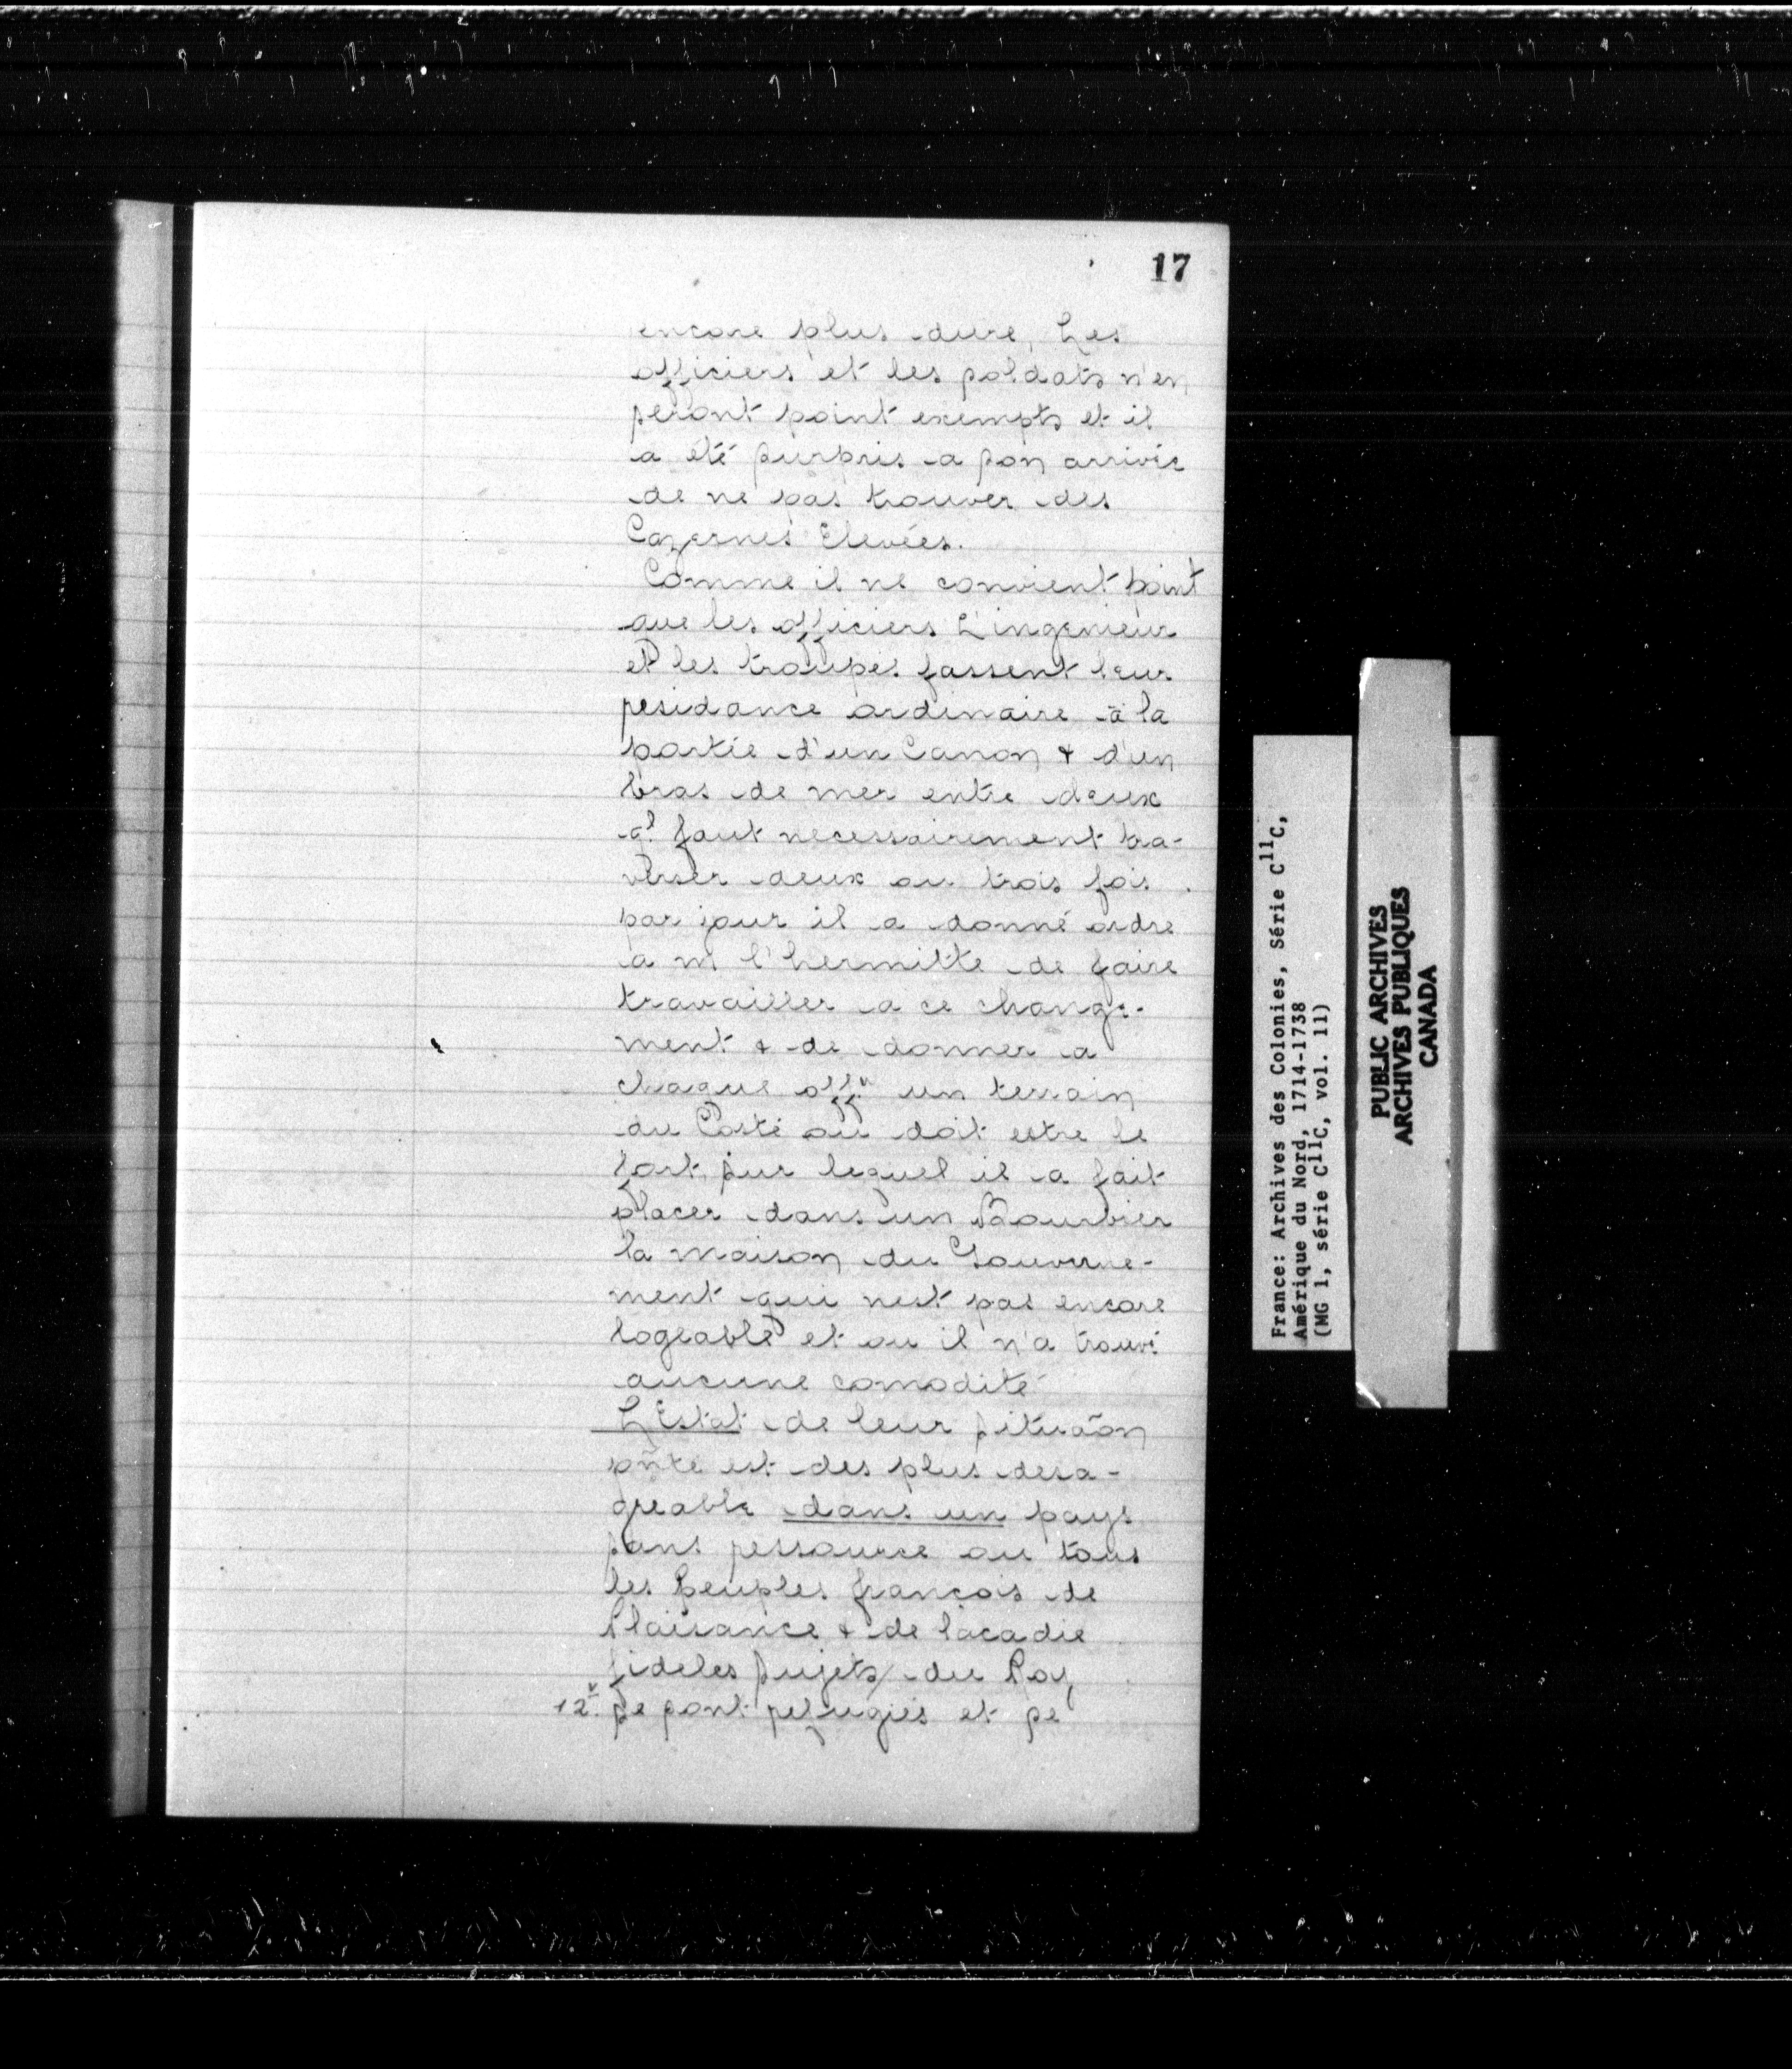 17
encore plus dure, Les
officiers et les soldats n'en
seront point exempts et il
a été surpris a son arrivée
de ne pas trouver des
Cazernes Elevées.
Comme il ne convient point
que les officiers L'ingenieur
et les troupes fassent leur
residance ordinaire à la
portée d'un Canon & d'un
bras de mer entre deux
ql faut necessairement tra-
verser deux ou trois fois
par jour il a donné ordre
a m l'hermitte de faire
travailler a ce change-
ment & de donner a
chaque offr un terrain
du Costé ou doit estre le
fort sur lequel il a fait
placer dans un Bourbier
la maison du Gouverne-
ment qui nest pas encore
logeable et ou il n'a trouvé
aucune comodité
L'Estat de leur situaõn
pñte est des plus desa-
greable dans un pays
sans ressource ou tous
les peuples françois de
Plaisance & de lacadie
fideles sujets du Roy
12 v. se sont refugiés et se
France: Archives des Colonies, Série C11C,
Amérique du Nord, 1714-1738
(MG 1, série C11C, vol. 11)
PUBLIC ARCHIVES
ARCHIVES PUBLIQUES
CANADA